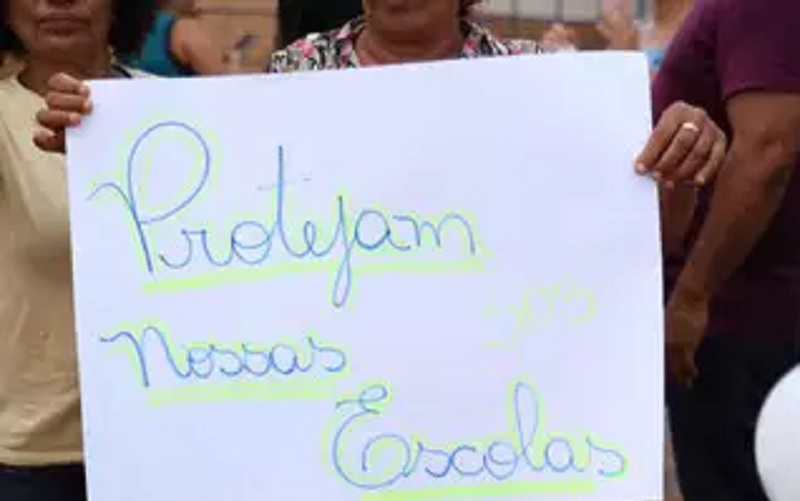 Protejam
SOS
Nossas
Escolas